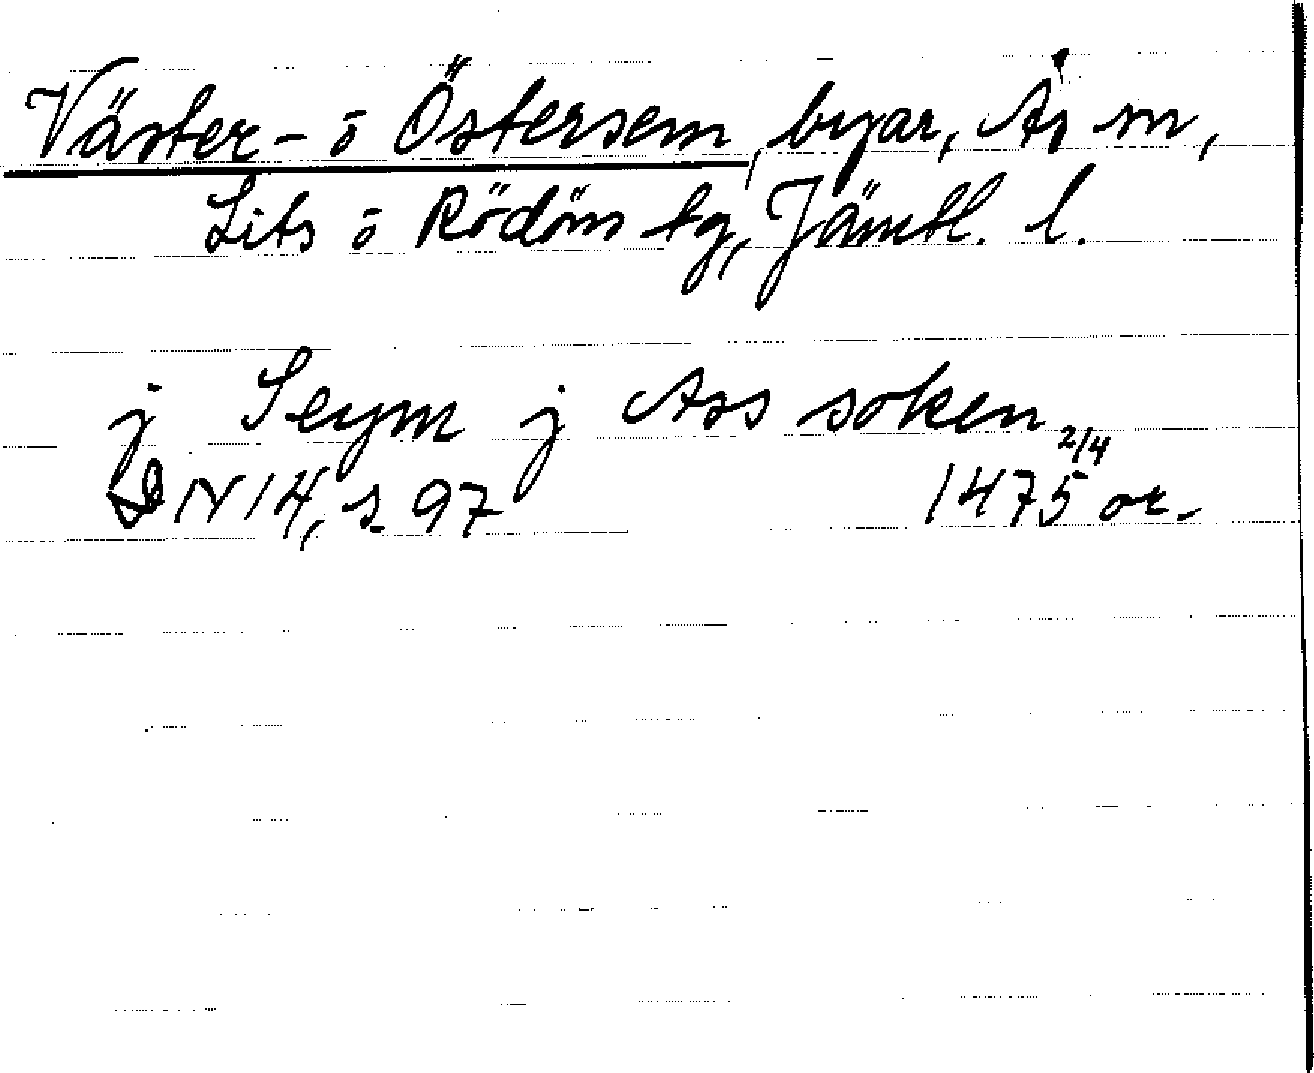 Väster- ō Östersem, byar, Ås sn,
Lits ō Rödöns tg, Jämtl. l.
j Seym j Ass soken
DN 14, s 97 1475 2/4 or.